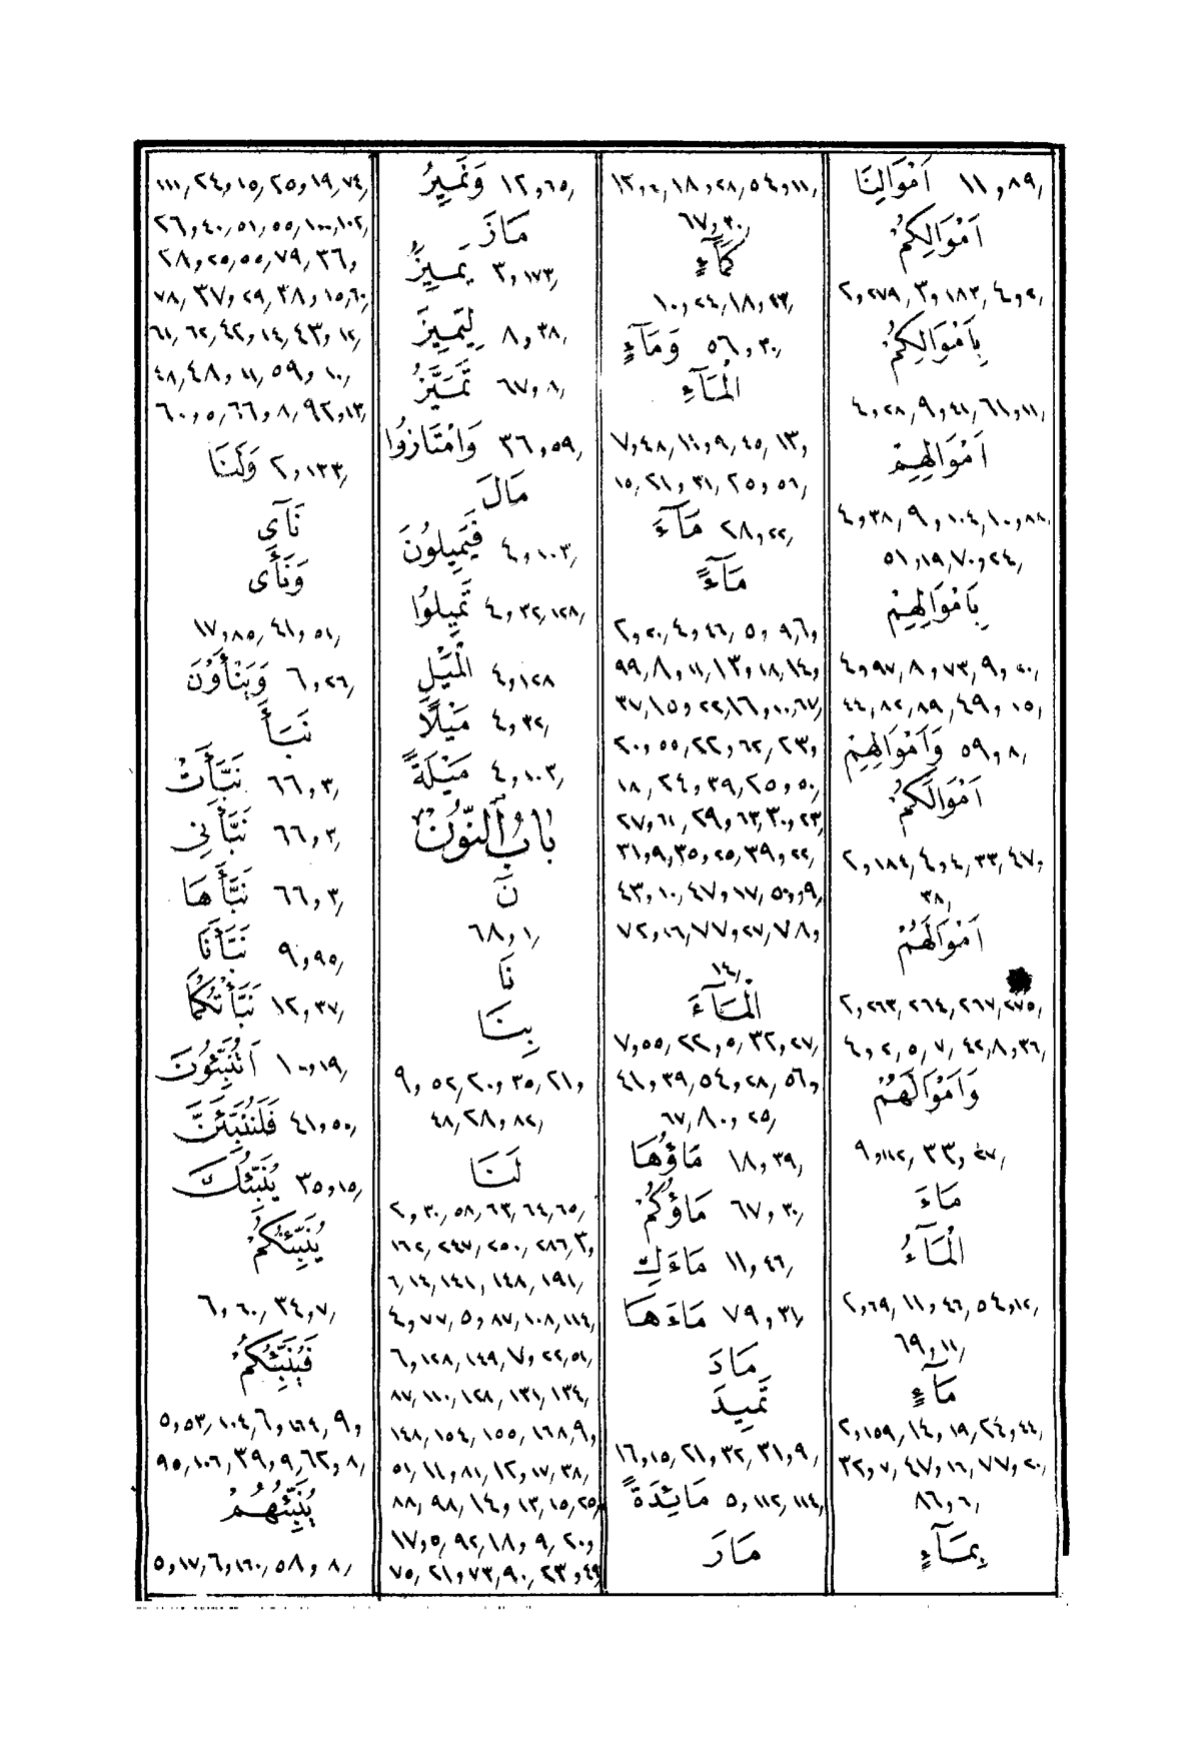 ١١,٨٩/ اَمْوَالِنَا
اَمْوَالِكُمْ
٢,٢٧٩, ٣,١٨٣/ ٤,٢/
بِاَمْوَالِكُمْ
٤,٢٨, ٩,٤١/ ٦١,١١/
اَمْوَالِهِمْ
٤,٣٨, ٩,١٠٤/ ١٠,٨٨/
٥١,١٩/ ٧٠,٢٤/
بِاَمْوَالِهِمْ
٤,٩٧/ ٨,٧٣/ ٩,٢٠/
٤٤/ ٨٢/ ٨٩/ ٤٩,١٥/
٥٩,٨/ وَاَمْوَالِهِمْ
اَمْوَالَكُمْ
٢,١٨٤/ ٤,٤/ ٣٣/ ٤٧,
٣٨/
اَمْوَالَهُمْ
٢,٢٦٣/ ٢٦٤/ ٢٦٧/ ٢٧٥/
٤,٢/ ٥/ ٧/ ٤٢/ ٨,٣٦/
وَاَمْوَالَهُمْ
٩,١١٢/ ٣٣,٢٧/
مَاءَ
اَلْمَآءُ
٢,٦٩/ ١١,٤٦/ ٥٤,١٢/
٦٩,١١/
مَآءٍ
٢,١٥٩/ ١٤,١٩/ ٢٤,٤٤/
٣٢,٧/ ٤٧,١٦/ ٧٧,٢٠/
٨٦,٦/
بِمَآءٍ
١٢,٤/ ١٨,٢٨/ ٥٤,١١/
٦٧,٣٠/
كَمَآءٍ
١٠,٢٤/ ١٨,٤٣/
٥٦,٣٠/ وَمَآءٍ
اَلْمَآءِ
٧,٤٨/ ١١,٩, ٤٥/ ١٣,
١٥/ ٢١,٣١, ٢٥,٥٦/
٢٨,٢٢/ مَآءَ
مَآءً
٢,٢٠/ ٤,٤٦/ ٥, ٩/ ٦,
٩٩/ ٨,١١/ ١٣,١٨/ ١٤,
٣٧/ ١٥,٢٢/ ١٦,١٠/ ٦٧/
٢٠,٥٥/ ٢٢,٦٢/ ٢٣,
١٨/ ٢٤,٣٩/ ٢٥,٥٠/
٢٧,٦١/ ٢٩,٦٣/ ٣٠,٢٣/
٣١,٩, ٣٥,٢٥, ٣٩,٢٢/
٤٣,١٠/ ٤٧,١٧/ ٥٠,٩/
٧٢,١٦/ ٧٧,٢٧/ ٧٨,
١٤/
اَلْمَآءَ
٧,٥٥/ ٢٢,٥/ ٣٢,٢٧/
٤١,٣٩/ ٥٤,٢٨/ ٥٦,
٦٧/ ٨٠,٢٥/
١٨,٣٩/ مَاؤُهَا
٦٧,٣٠/ مَاؤُكُمْ
١١,٤٦/ مَاءَكِ
٧٩,٣١/ مَاءَهَا
مَادَ
تَمِيدَ
١٦,١٥/ ٢١,٣٢/ ٣١,٩/
٥,١١٢/ ١١٤/ مَائِدَةً
مَارَ
١٢,٦٥/ وَنَمِيرُ
مَازَ
٣,١٧٣/ يَمِيزُ
٨,٣٨/ لِيَمِيزَ
٦٧,٨/ تَمَيَّزُ
٣٦,٥٩/ وَامْتَازُوا
مَالَ
٤,١٠٣/ فَيَمِيلُونَ
٤,٣٢/ ١٢٨/ تَمِيلُوا
٤,١٢٨ اَلْمَيْلِ
٤,٣٢/ مَيْلًا
٤,١٠٣/ مَيْلَةً
بَابُ النُّونِ
نَ
٦٨,١/
نَا
بِنَا
٩, ٥٢/ ٢٠,٣٥/ ٢١,
٤٨/ ٢٨,٨٢/
لَنَا
٢,٣٠/ ٥٨/ ٦٣/ ٦٤/ ٦٥/
١٦٢/ ٢٤٧/ ٢٥٠/ ٢٨٦/ ٣,
٦/ ١٤/ ١٤١/ ١٤٨/ ١٩١/
٤,٧٧/ ٥,٨٧/ ١٠٨/ ١١٤/
٦,١٢٨/ ١٤٩/ ٧,٢٢/ ٥١/
٨٧/ ١١٠/ ١٢٨/ ١٣١/ ١٣٤/
١٤٨/ ١٥٤/ ١٥٥/ ١٦٨/ ٩,
٥١/ ١١,٨١/ ١٢,١٧/ ٣٨/
٨٨/ ٩٨/ ١٤,١٣/ ١٥/ ٢٥/
١٧,٥/ ٩٢/ ١٨,٩, ٢٠,
٧٥/ ٢١,٧٣/ ٩٠/ ٢٣,٤٩
١١١/ ٢٤,١٥/ ٢٥,١٩/ ٧٤/
٢٦,٤٠/ ٥١/ ٥٥/ ١٠٠/ ١٠٢/
٢٨,٢٥, ٥٥/ ٧٩/ ٣٦,
٧٨/ ٣٧,٢٩, ٣٨,١٥/ ٦٠/
٦١/ ٦٢/ ٤٢,١٤/ ٤٣,١٢/
٤٨/ ٤٨,١١, ٥٩,١٠/
٦٠,٥/ ٦٦,٨/ ٩٢,١٣/
٢,١٣٣/ وَلَنَا
نَآى
وَنَأَى
١٧,٨٥/ ٤١,٥١/
٦,٢٦/ وَيَنْأَوْنَ
نَبَأَ
٦٦,٣/ نَبَّأَتْ
٦٦,٣/ نَبَّأَنِى
٦٦,٣/ نَبَّأَهَا
٩,٩٥/ نَبَّأَنَا
١٢,٣٧/ نَبَّأْتُكُمَا
١٠,١٩/ اَتُنَبِّئُونَ
٤١,٥٠/ فَلَنُنَبِّئَنَّ
٣٥,١٥/ يُنَبِّئُكَ
يُنَبِّئُكُمْ
٦,٦٠/ ٣٤,٧/
فَيُنَبِّئُكُمْ
٥,٥٣/ ١٠٤/ ٦,١٦٤/ ٩,
٩٥/ ١٠٦/ ٣٩,٩, ٦٢,٨/
يُنَبِّئُهُمْ
٥,١٧/ ٦,١٦٠/ ٥٨, ٨/